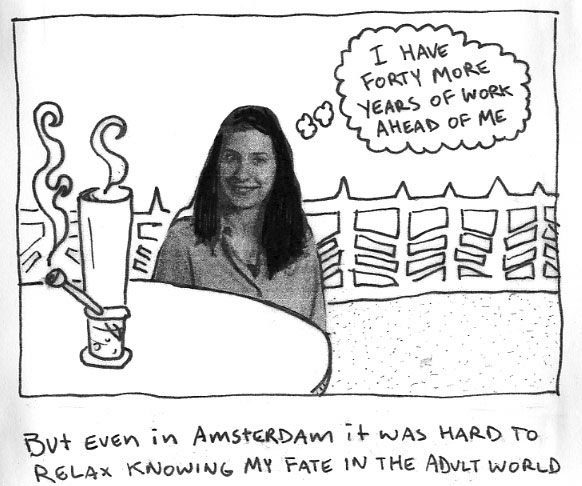 I HAVE
FORTY MORE
YEARS OF WORK
AHEAD OF ME
BUT EVEN IN AMSTERDAM IT WAS HARD TO
RELAX KNOWING MY FATE IN THE ADULT WORLD